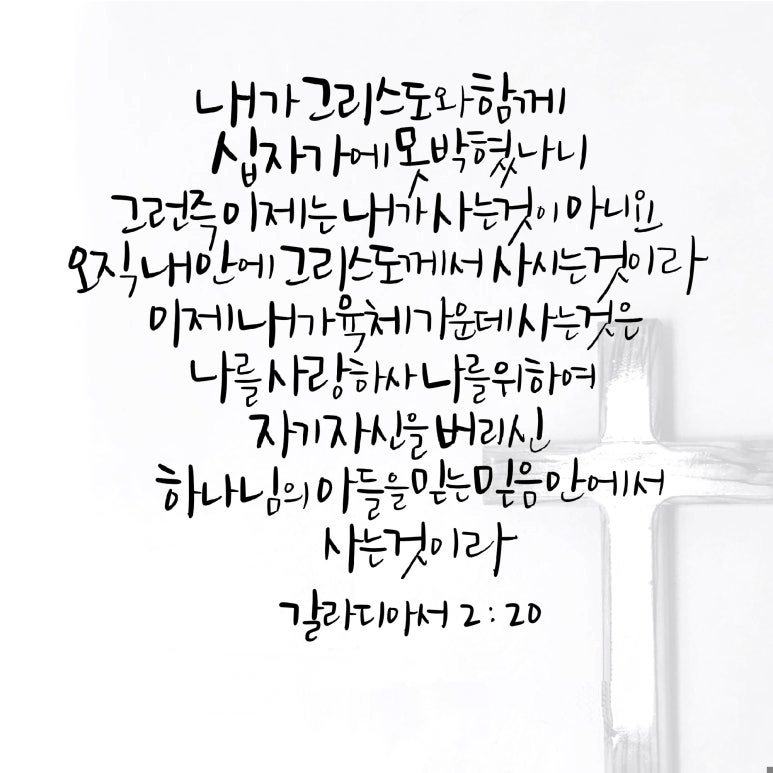 내가 그리스도와 함께
십자가에 못 박혔나니
그런즉 이제는 내가 사는 것이 아니요
오직 내 안에 그리스도께서 사시는 것이라
이제 내가 육체 가운데 사는 것은
나를 사랑하사 나를 위하여
자기 자신을 버리신
하나님의 아들을 믿는 믿음 안에서
사는 것이라
갈라디아서 2:20